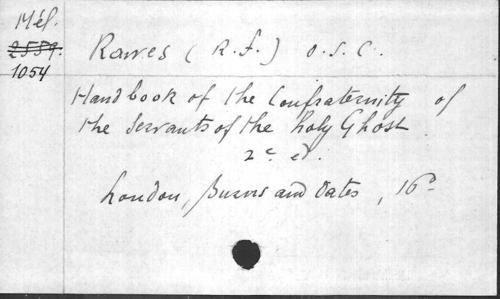 Mél.
2559.
1054
Rawes (R. F.) O. S. C.
Handbook of the Confraternity of
the Servants of the Holy Ghost.
2e ed.
London, Burns and Oates, 16°